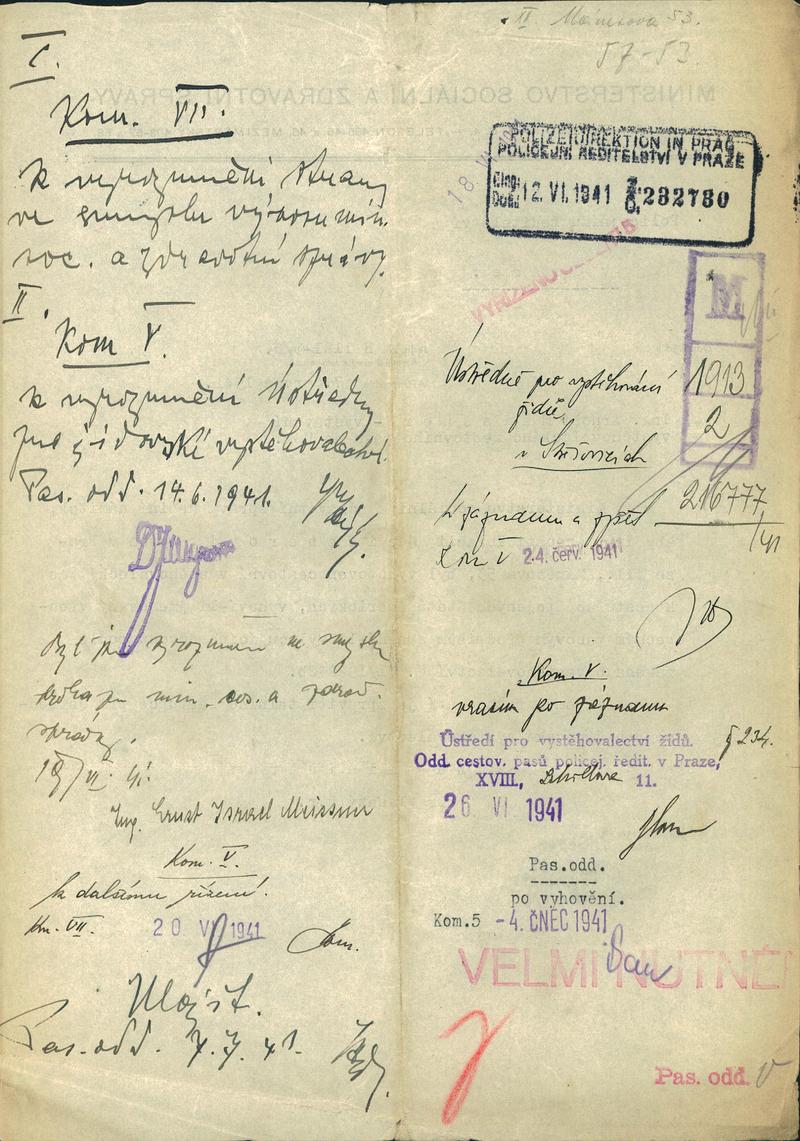 I.
Kom. VII.
k vyrozumění strany
ve smyslu výnosu min.
soc. a zdravotní správy.
II.
Kom V.
k vyrozumění Ústředny
pro židovské vystěhovalectví.
Pas. odd. 14.6.1941.
Byl jsem vyrozuměn ve smyslu
min. soc. a zdrav.
správy.
Ing. Ernst Israel Meissner
Kom. V.
k dalšímu řízení.
Km. VII.
20 VI 1941
Ulož st.
Pas. odd. 7.7.41.
II. 53.
57-53.
POLIZEIDIREKTION IN PRAG
POLICEJNÍ ŘEDITELSTVÍ V PRAZE
Eing.
Došlo 12. VI. 1941 232780
18
VYŘÍZENO
M
1913
2
Ústředně pro vystěhování
židů
v Střešovicích
216777
/41
k záznamu a zpět
Kom V 24. červ. 1941
Kom. V.
vracím po záznamu
Ústředí pro vystěhovalectví židů. 234.
Odd. cestov. pasů policej. ředit. v Praze,
XVIII, 11.
26 VI 1941
Pas.odd.
po vyhovění.
Kom.5 -4. ČNEC 1941
VELMI NUTNÉ
Pas. odd.